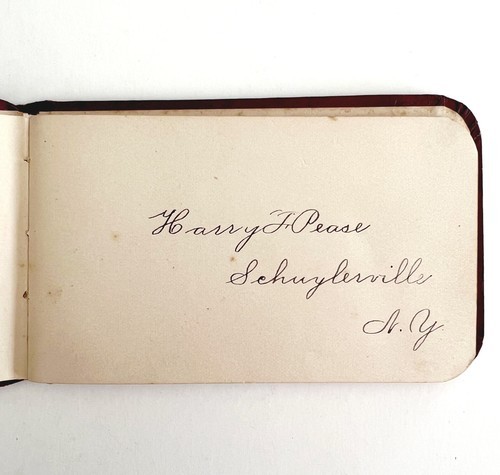 Harry F Pease
Schuylerville
N.Y.